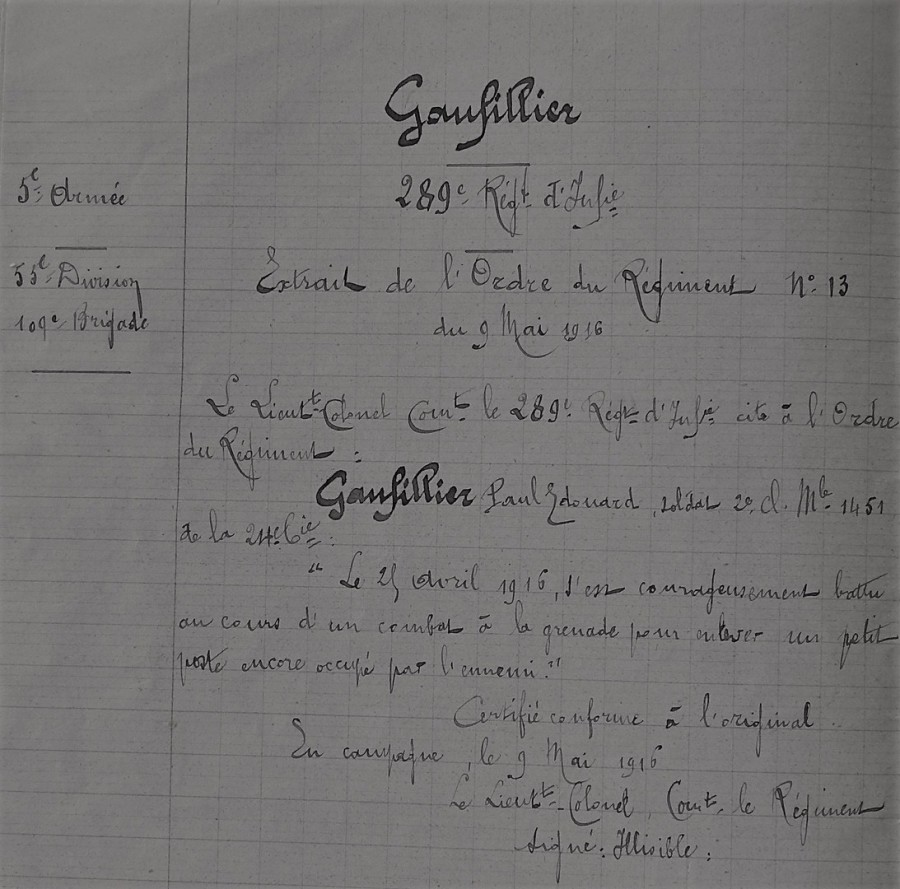 Gaufillier
289e Régt d'Infie
5e Armée
55e Division
109e Brigade
Extrait de l'Ordre du Régiment No 13
du 9 Mai 1916
Le Lieutt-Colonel Comt le 289e Régt d'Infie cite à l'Ordre
du Régiment :
Gaufillier Paul Edouard, soldat 2e cl. Mle 1451
de la 24e Cie :
" Le 25 Avril 1916, s'est courageusement battu
au cours d'un combat à la grenade pour enlever un petit
poste encore occupé par l'ennemi."
Certifié conforme à l'original.
En campagne, le 9 Mai 1916
Le Lieutt-Colonel, Comt le Régiment
Signé : Illisible :